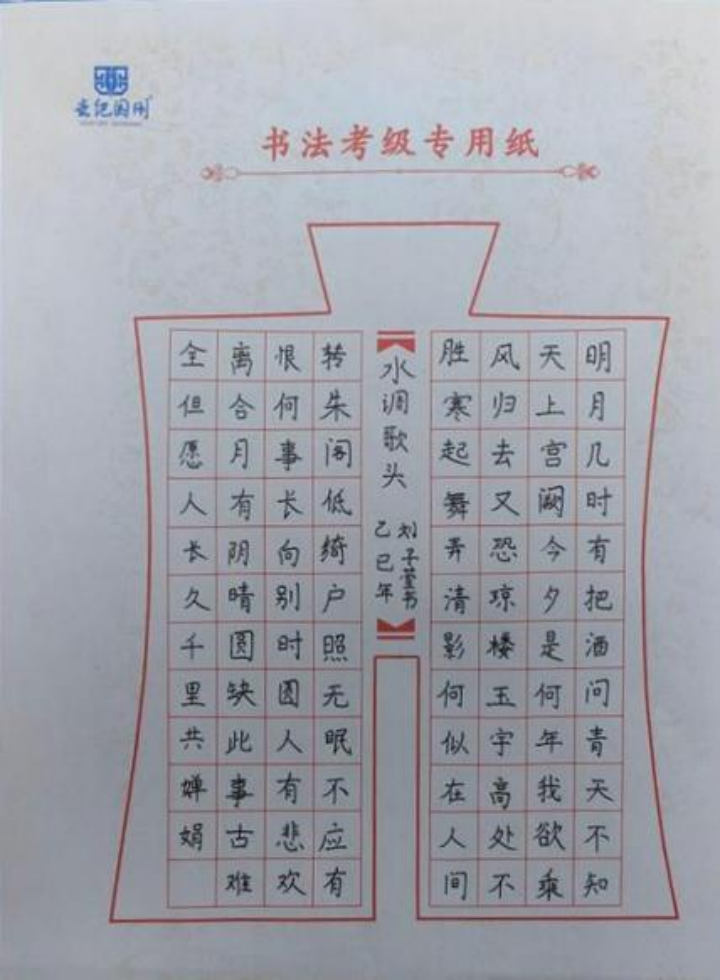 书法考级专用纸
明月几时有把酒问青天不知
天上宫阙今夕是何年我欲乘
风归去又恐琼楼玉宇高处不
胜寒起舞弄清影何似在人间
水调歌头
刘子萱书
乙巳年
转朱阁低绮户照无眠不应有
恨何事长向别时圆人有悲欢
离合月有阴晴圆缺此事古难
全但愿人长久千里共婵娟